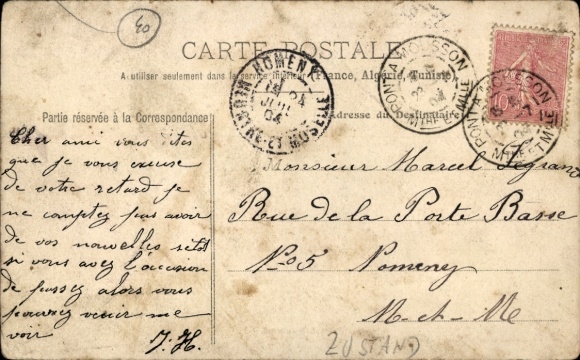 20
CARTE POSTALE
A utiliser seulement dans le service intérieur (France, Algérie, Tunisie)
Partie réservée à la Correspondance
Adresse du Destinataire
NOMENY
14 24
JUIL
04
MEURTHE-ET-MOSELLE
PONT A MOUSSON
04
MTHE ET MELLE
PONT A MOUSSON
MTHE ET MELLE
10
Cher ami vous dites
que je vous excuse
de votre retard je
ne comptez pas avoir
de vos nouvelles sitôt
si vous avez l'occasion
de passez alors vous
pouvez venir me
voir
J. H.
Monsieur Marcel Legrand
Rue de la Porte Basse
No 5 Nomeny
M-et-M
ZUSTAND